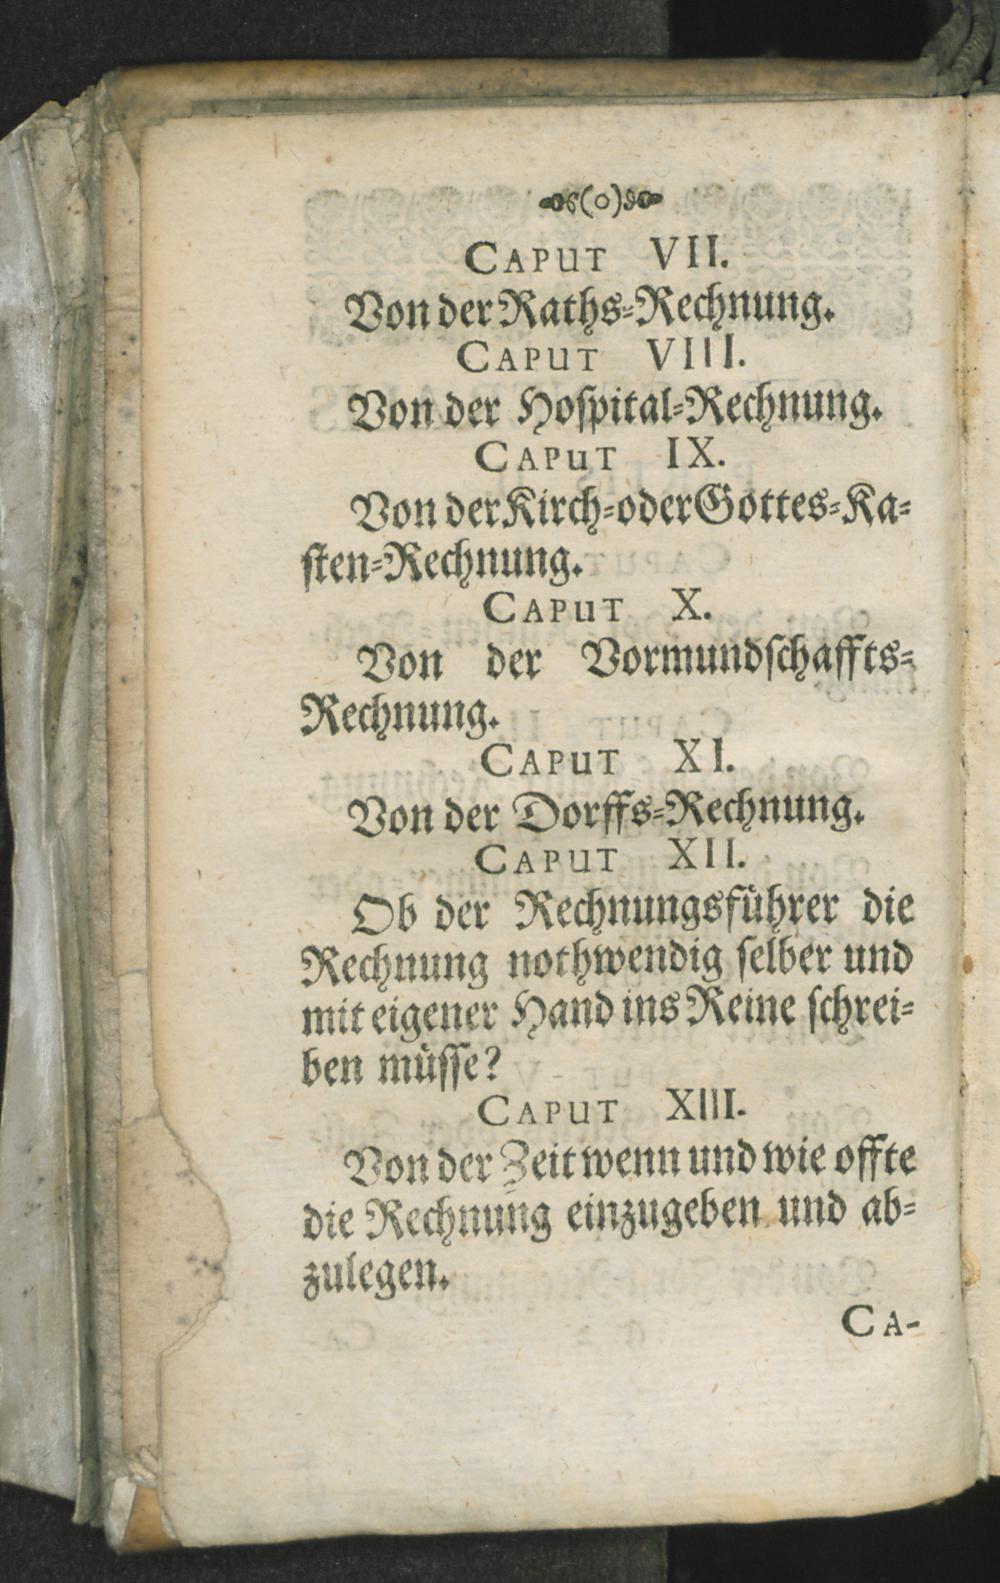 (o)
CAPUT VII.
Von der Raths-Rechnung.
CAPUT VIII.
Von der Hoſpital-Rechnung.
CAPUT IX.
Von der Kirch-oder Gottes-Ka-
ſten-Rechnung.
CAPUT X.
Von der Vormundſchaffts-
Rechnung.
CAPUT XI.
Von der Dorffs-Rechnung.
CAPUT XII.
Ob der Rechnungsfuͤhrer die
Rechnung nothwendig ſelber und
mit eigener Hand ins Reine ſchrei-
ben muͤſſe?
CAPUT XIII.
Von der Zeit wenn und wie offte
die Rechnung einzugeben und ab-
zulegen.
CA-